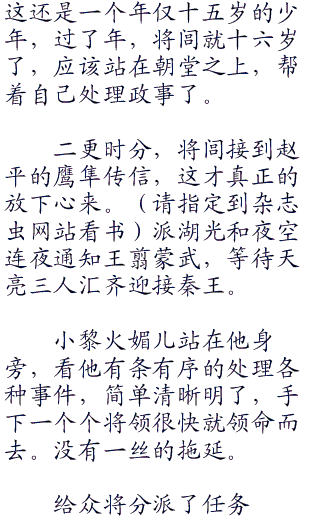 这还是一个年仅十五岁的少
年，过了年，将闾就十六岁
了，应该站在朝堂之上，帮
着自己处理政事了。
二更时分，将闾接到赵
平的鹰隼传信，这才真正的
放下心来。（请指定到杂志
虫网站看书）派湖光和夜空
连夜通知王翦蒙武，等待天
亮三人汇齐迎接秦王。
小黎火媚儿站在他身
旁，看他有条有序的处理各
种事件，简单清晰明了，手
下一个个将领很快就领命而
去。没有一丝的拖延。
给众将分派了任务